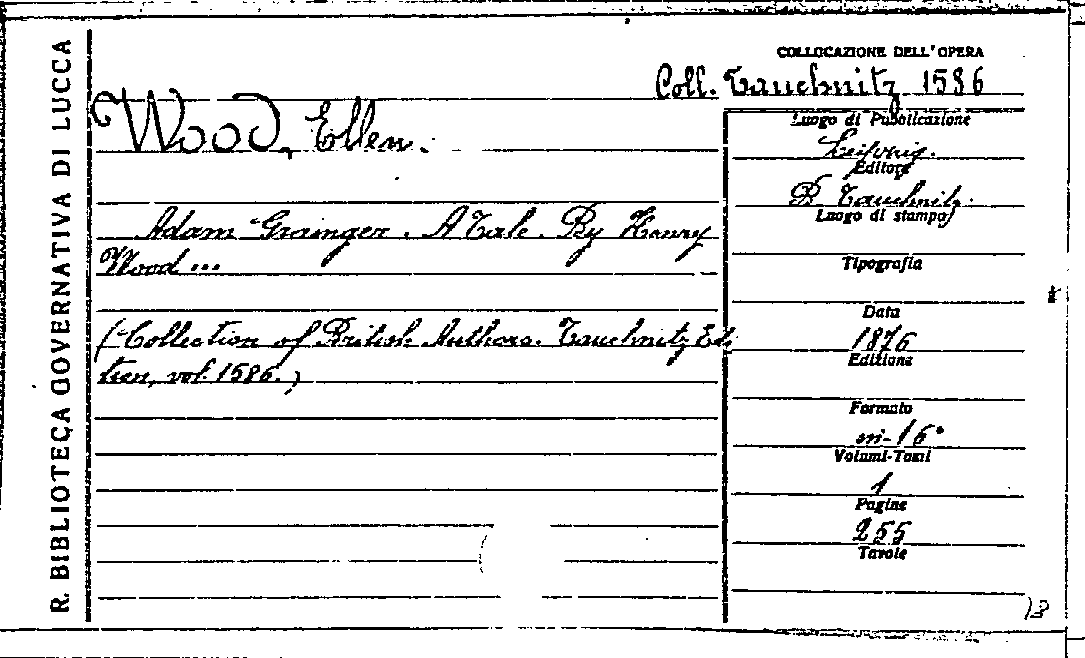 R. BIBLIOTECA GOVERNATIVA DI LUCCA
COLLOCAZIONE DELL'OPERA
Coll. Tauchnitz 1586
Wood, Ellen.
Adam Grainger. A Tale. By Henry
Wood ...
(Collection of British Authors. Tauchnitz Edi
tion, vol. 1586.)
Luogo di Pubblicazione
Leipzig.
Editore
B. Tauchnitz.
Luogo di stampa
Tipografia
Data
1876
Edizione
Formato
in-16°
Volumi-Tomi
1
Pagine
255
Tavole